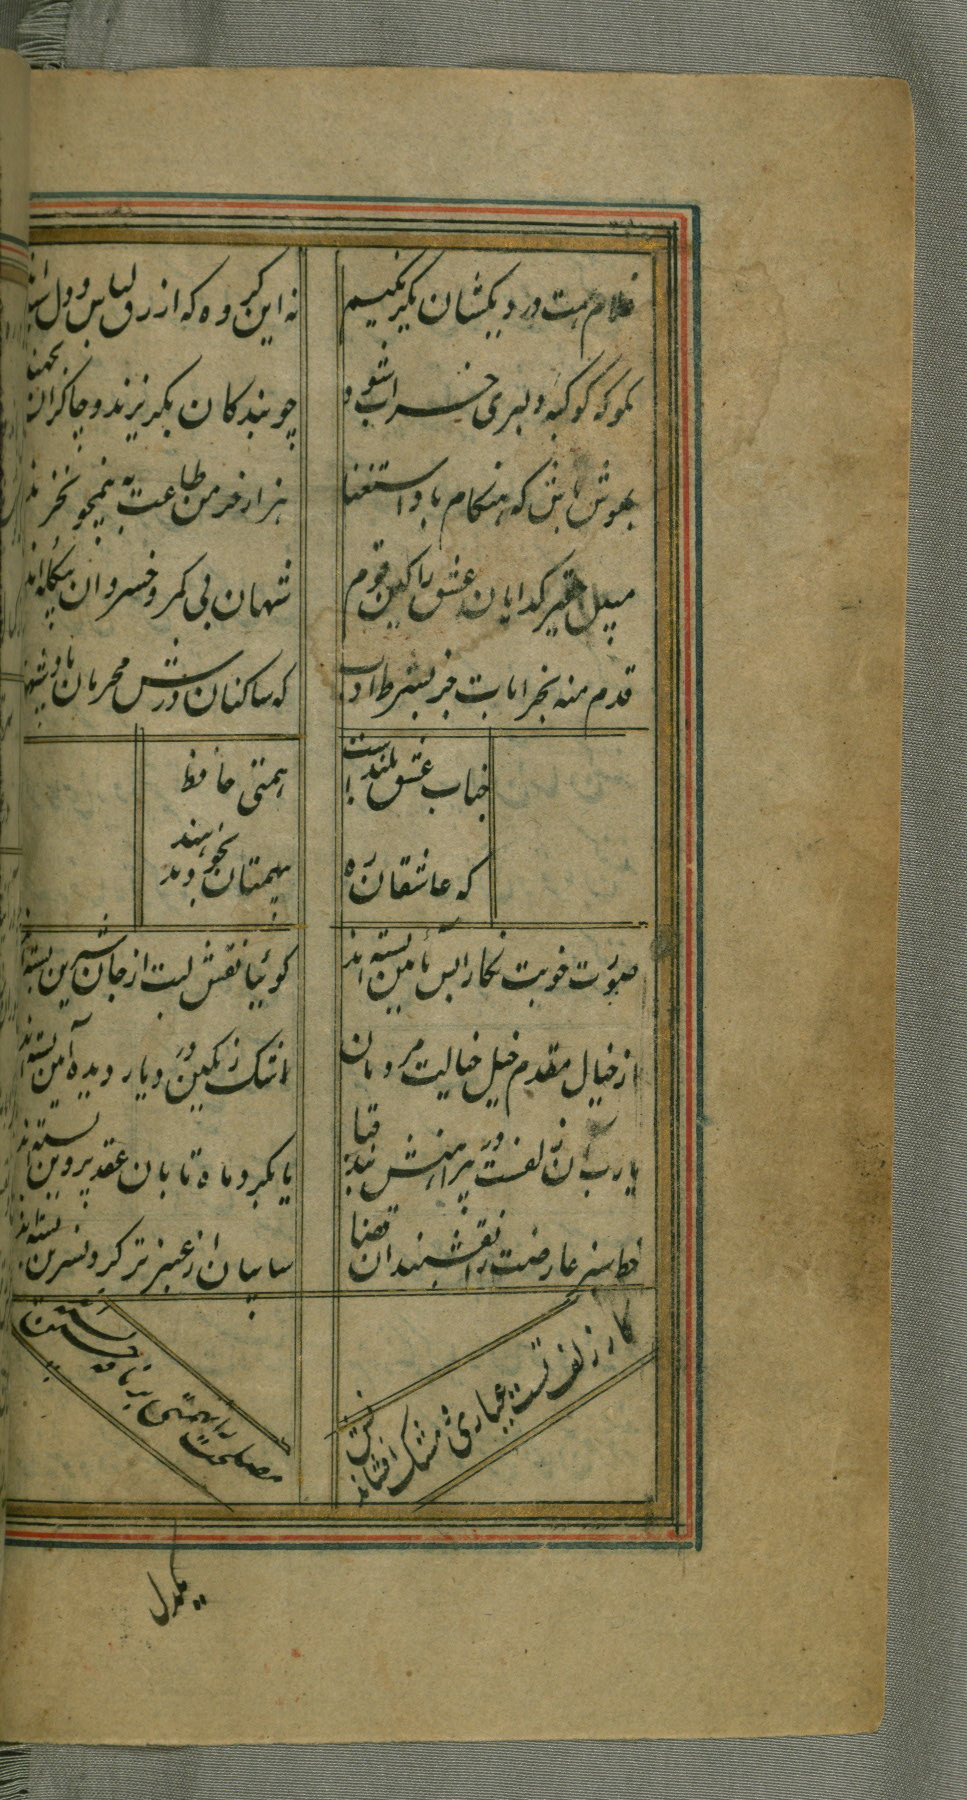 غلام همت دردیکشان یکرنگیم
نه این گروه که ازرق لباس و دل سیه
مکوکه کوکبه دلبری خراب شود
چو بندکان بکریزند و چاکران بجهند
بهوش باش که هنکام باد استغنا
هزار خرمن طاعت به نیمجو نخرند
مبین حقیر کدایان عشق را کین قوم
شهان بی کمر و خسروان بیکله‌اند
قدم منه بخرابات جز بشرط ادب
که ساکنان درش محرمان پادشهند
جناب عشق بلندست
همتی حافظ
که عاشقان ره
بیهمتان بخود ندهند
صورت خوبت نکارا بس بآیین بسته‌اند
کوئیا نقش لبت از جان شیرین بسته‌اند
از خیال مقدم خیل خیالت مردمان
اشک رنکین در دیار دیده آیین بسته‌اند
یارب آن زلفست در پیرامنش بند قبا
یا بکرد ماه تابان عقد پروین بسته‌اند
خط سبز عارضت را نقشبندان قضا
سایبان از عنبر تر کرد نسرین بسته‌اند
کار زلف تست عنباری و مشک افشاند
مصلحت را تهمتی بر نافه
یکدل